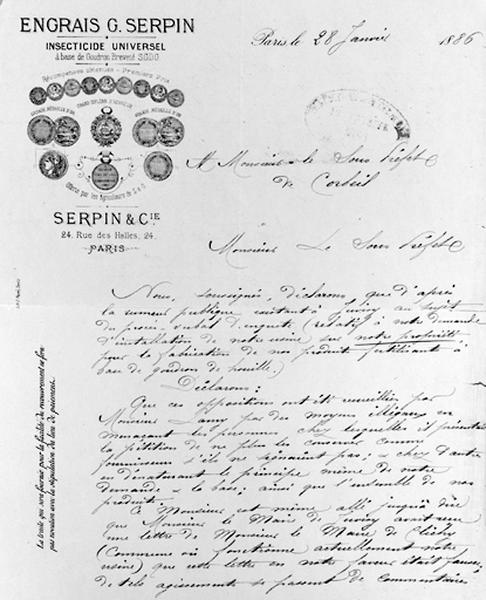 ENGRAIS G. SERPIN
INSECTICIDE UNIVERSEL
à base de Goudron Breveté S.G.D.G.
Récompenses obtenues - Premiers Prix
GRANDE MÉDAILLE D'OR
GRAND DIPLÔME D'HONNEUR
GRANDE MÉDAILLE D'OR
Offerte par les Agriculteurs de S & O
SERPIN & CIE
24, Rue des Halles, 24
PARIS
Paris, le 28 Janvier 1886
A Monsieur le Sous Préfet
de Corbeil
Monsieur Le Sous Préfet
Nous, soussignés, déclarons, que d'après
la rumeur publique existant à Juvisy au sujet
du procès-verbal d'enquête (relatif à notre demande
d'installation de notre usine sur notre propriété
pour la fabrication de nos produits fertilisants à
base de goudron de houille.)
Déclarons:
Que ces oppositions ont été recueillies par
Monsieur par des moyens illégaux en
menaçant les personnes chez lesquelles il présentait
la pétition de ne plus les conserver comme
fournisseurs s'ils ne signaient pas; & chez d'autres
en dénaturant le principe même de notre
demande & la base; ainsi que l'ensemble de nos
produits.
Ce Monsieur est même allé jusqu'à dire
que Monsieur le Maire de Juvisy avait reçu
une lettre de Monsieur le Maire de Clichy
(Commune où fonctionne actuellement notre
usine) que cette lettre en notre faveur était fausse,
de tels agissements se passent de commentaires
La traite que nous ferons pour la facilité du recouvrement ne fera
pas novation avec la stipulation du lieu de paiement.